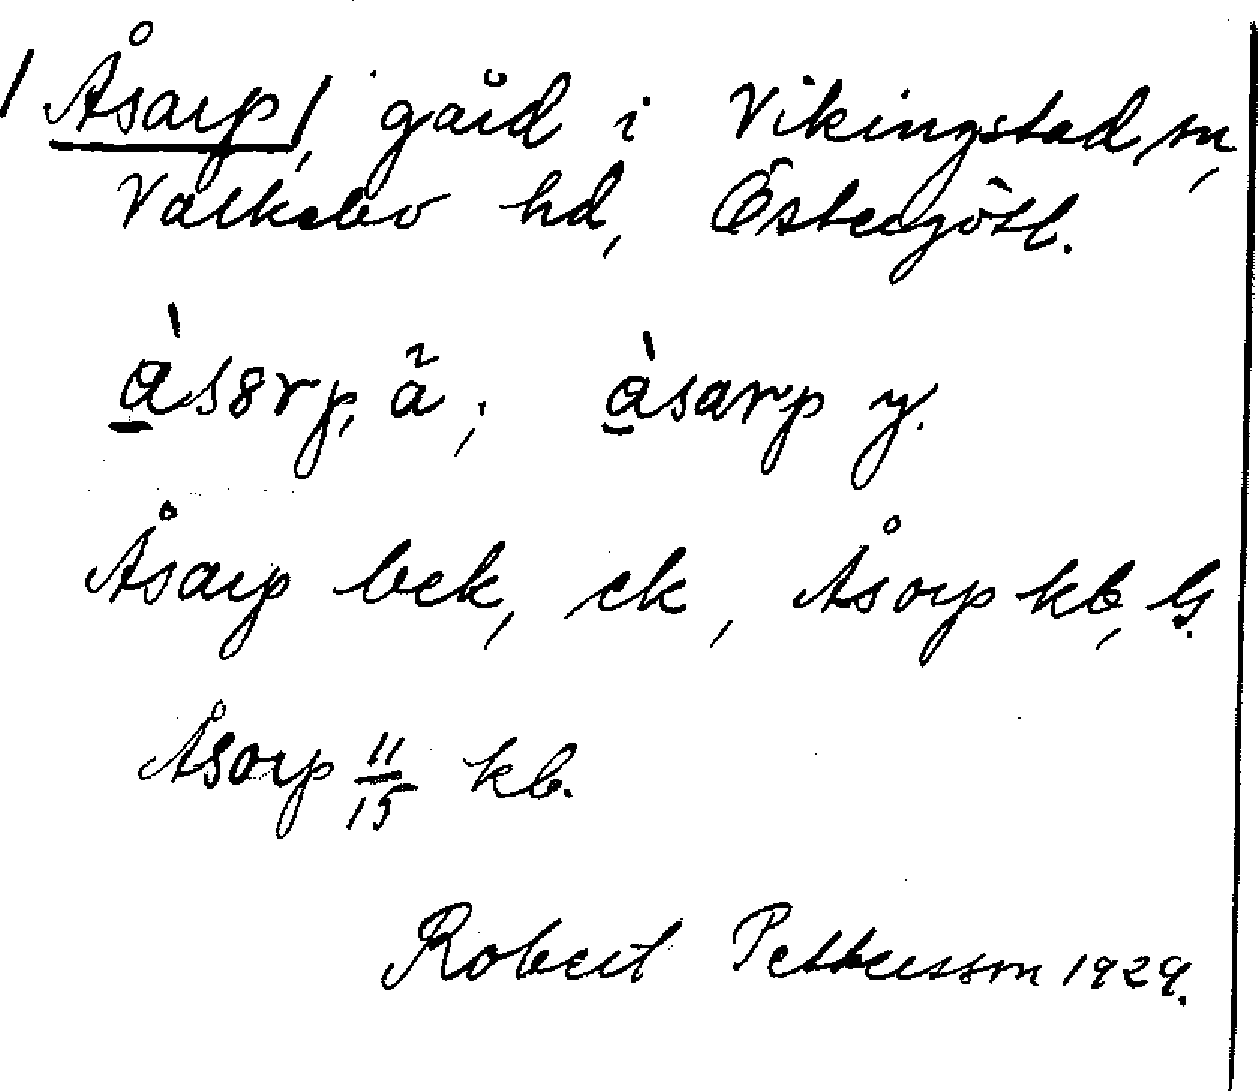 /Åsarp/, gård i Vikingstad sn,
Valkebo hd, Östergötl.
à̲sərp, ä̃, ; à̲sarp y.
Åsarp bek, ek, Åsorp kb, G.
Åsorp 11/15 kb.
Robert Pettersson 1929.